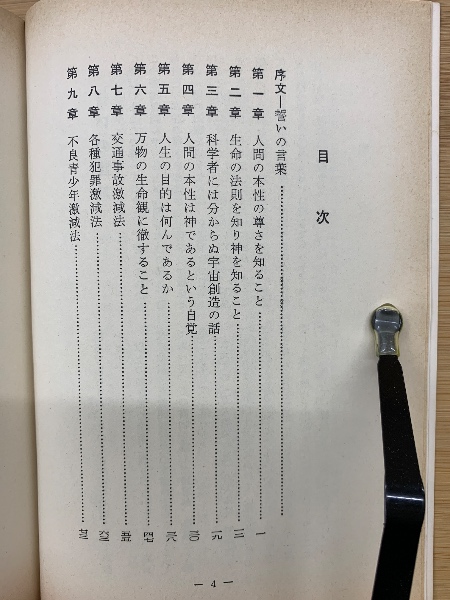 目次
序文―誓いの言葉
第一章 人間の本性の尊さを知ること 一
第二章 生命の法則を知り神を知ること 一二
第三章 科学者には分からぬ宇宙創造の話 一九
第四章 人間の本性は神であるという自覚 三〇
第五章 人生の目的は何んであるか 三八
第六章 万物の生命観に徹すること 四七
第七章 交通事故激減法 五五
第八章 各種犯罪激減法 六三
第九章 不良青少年激減法
― 4 ―